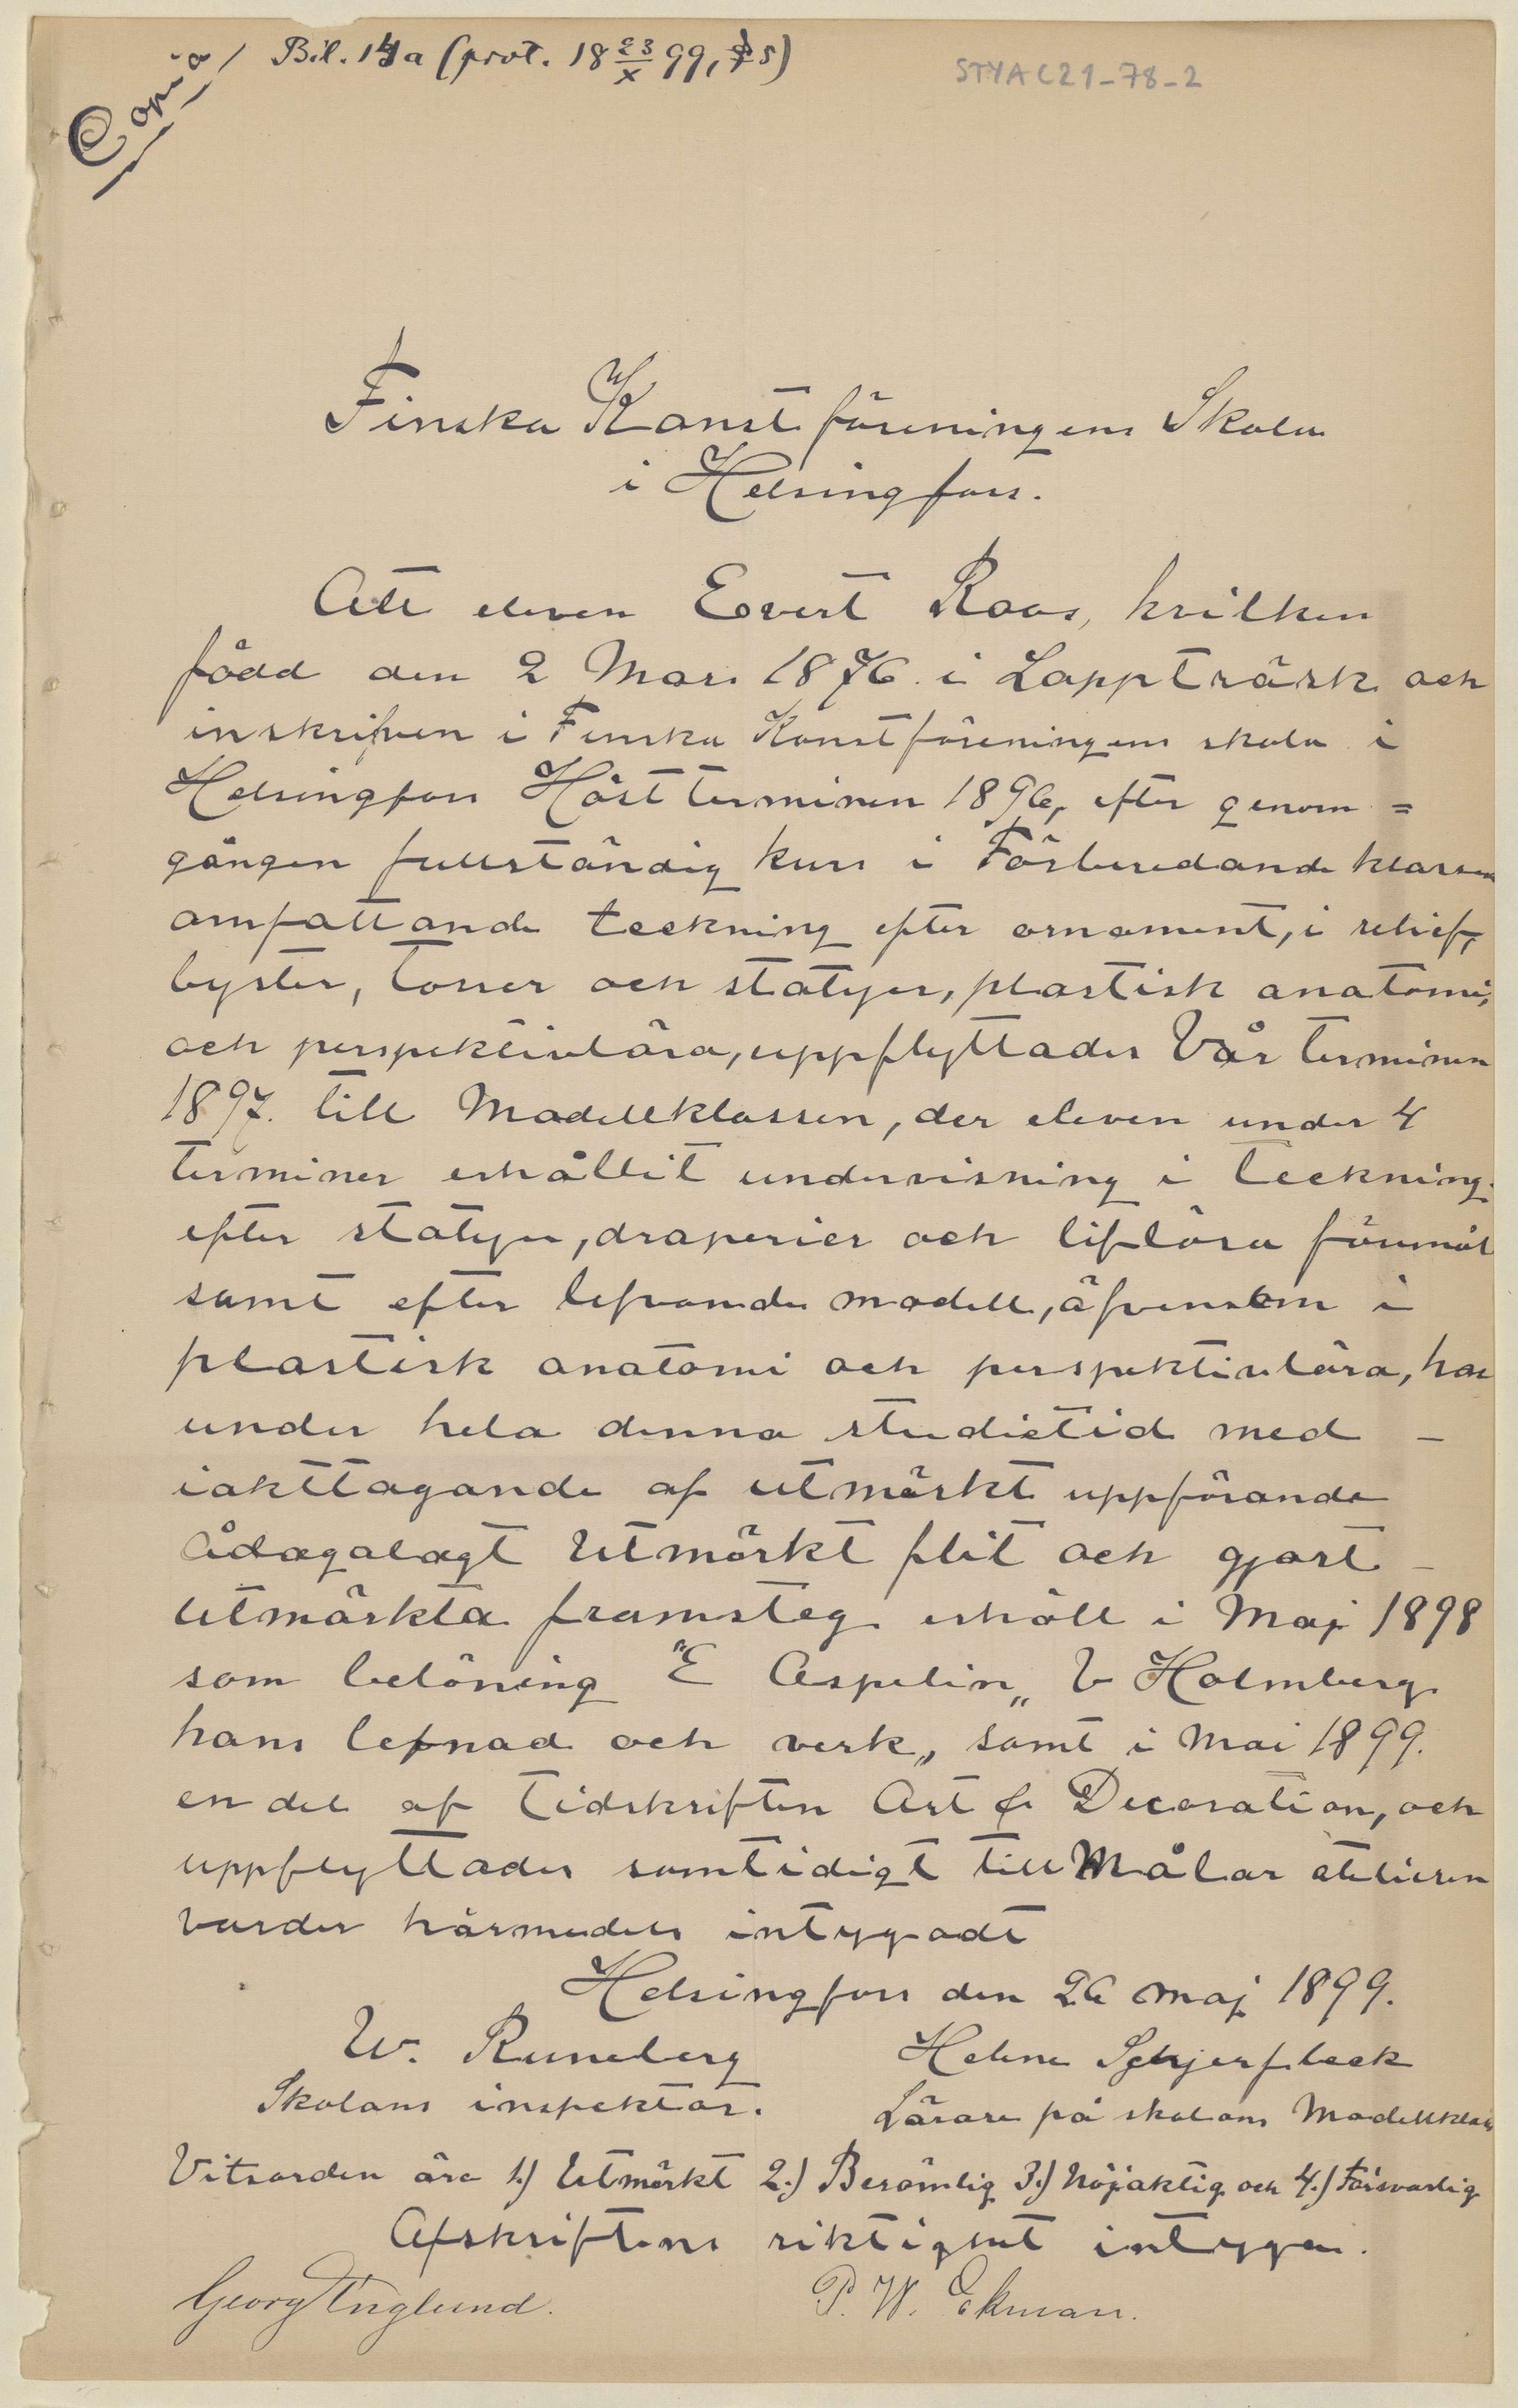 Copia / Bil. 14a (prot. 18 23/X 99, § 5)
STYA C21-78-2
Finska Konstföreningens Skola
i Helsingfors.
Att eleven Evert Roos, hvilken
född den 2 Mars 1876 i Lappträsk och
inskrifven i Finska Konstföreningens skola i
Helsingfors Höstterminen 1896, efter genom=
gången fullständig kurs i Förberedande klassen
omfattande teckning efter ornament, i relief,
byster, torser och statyer, plastisk anatomi,
och perspektivlära, uppflyttades Vår terminen
1897. till Modellklassen, der eleven under 4
terminer erhållit undervisning i teckning
efter statyer, draperier och liflösa föremål
samt efter lefvande modell, äfvensom i
plastisk anatomi och perspektivlära, har
under hela denna studietid med –
iakttagande af utmärkt uppförande
ådagalagt Utmärkt flit och gjort –
utmärkta framsteg erhöll i Maj 1898
som belöning "E Aspelin„ V Holmberg
hans lefnad och verk„ samt i Mai 1899.
en del af tidskriften Art & Decoration, och
uppflyttades samtidigt till Målar atelieren
varder härmedels intygadt
Helsingfors den 26 maj 1899.
W. Runeberg Helene Schjerfbeck
Skolans inspektor. Lärare på skolans Modellklass
Vitsorden äro 1.) Utmärkt 2.) Berömlig 3.) Nöjaktig och 4.) Försvarlig
Afskriftens riktighet intygen.
Georg Englund. P. W. Ekman.